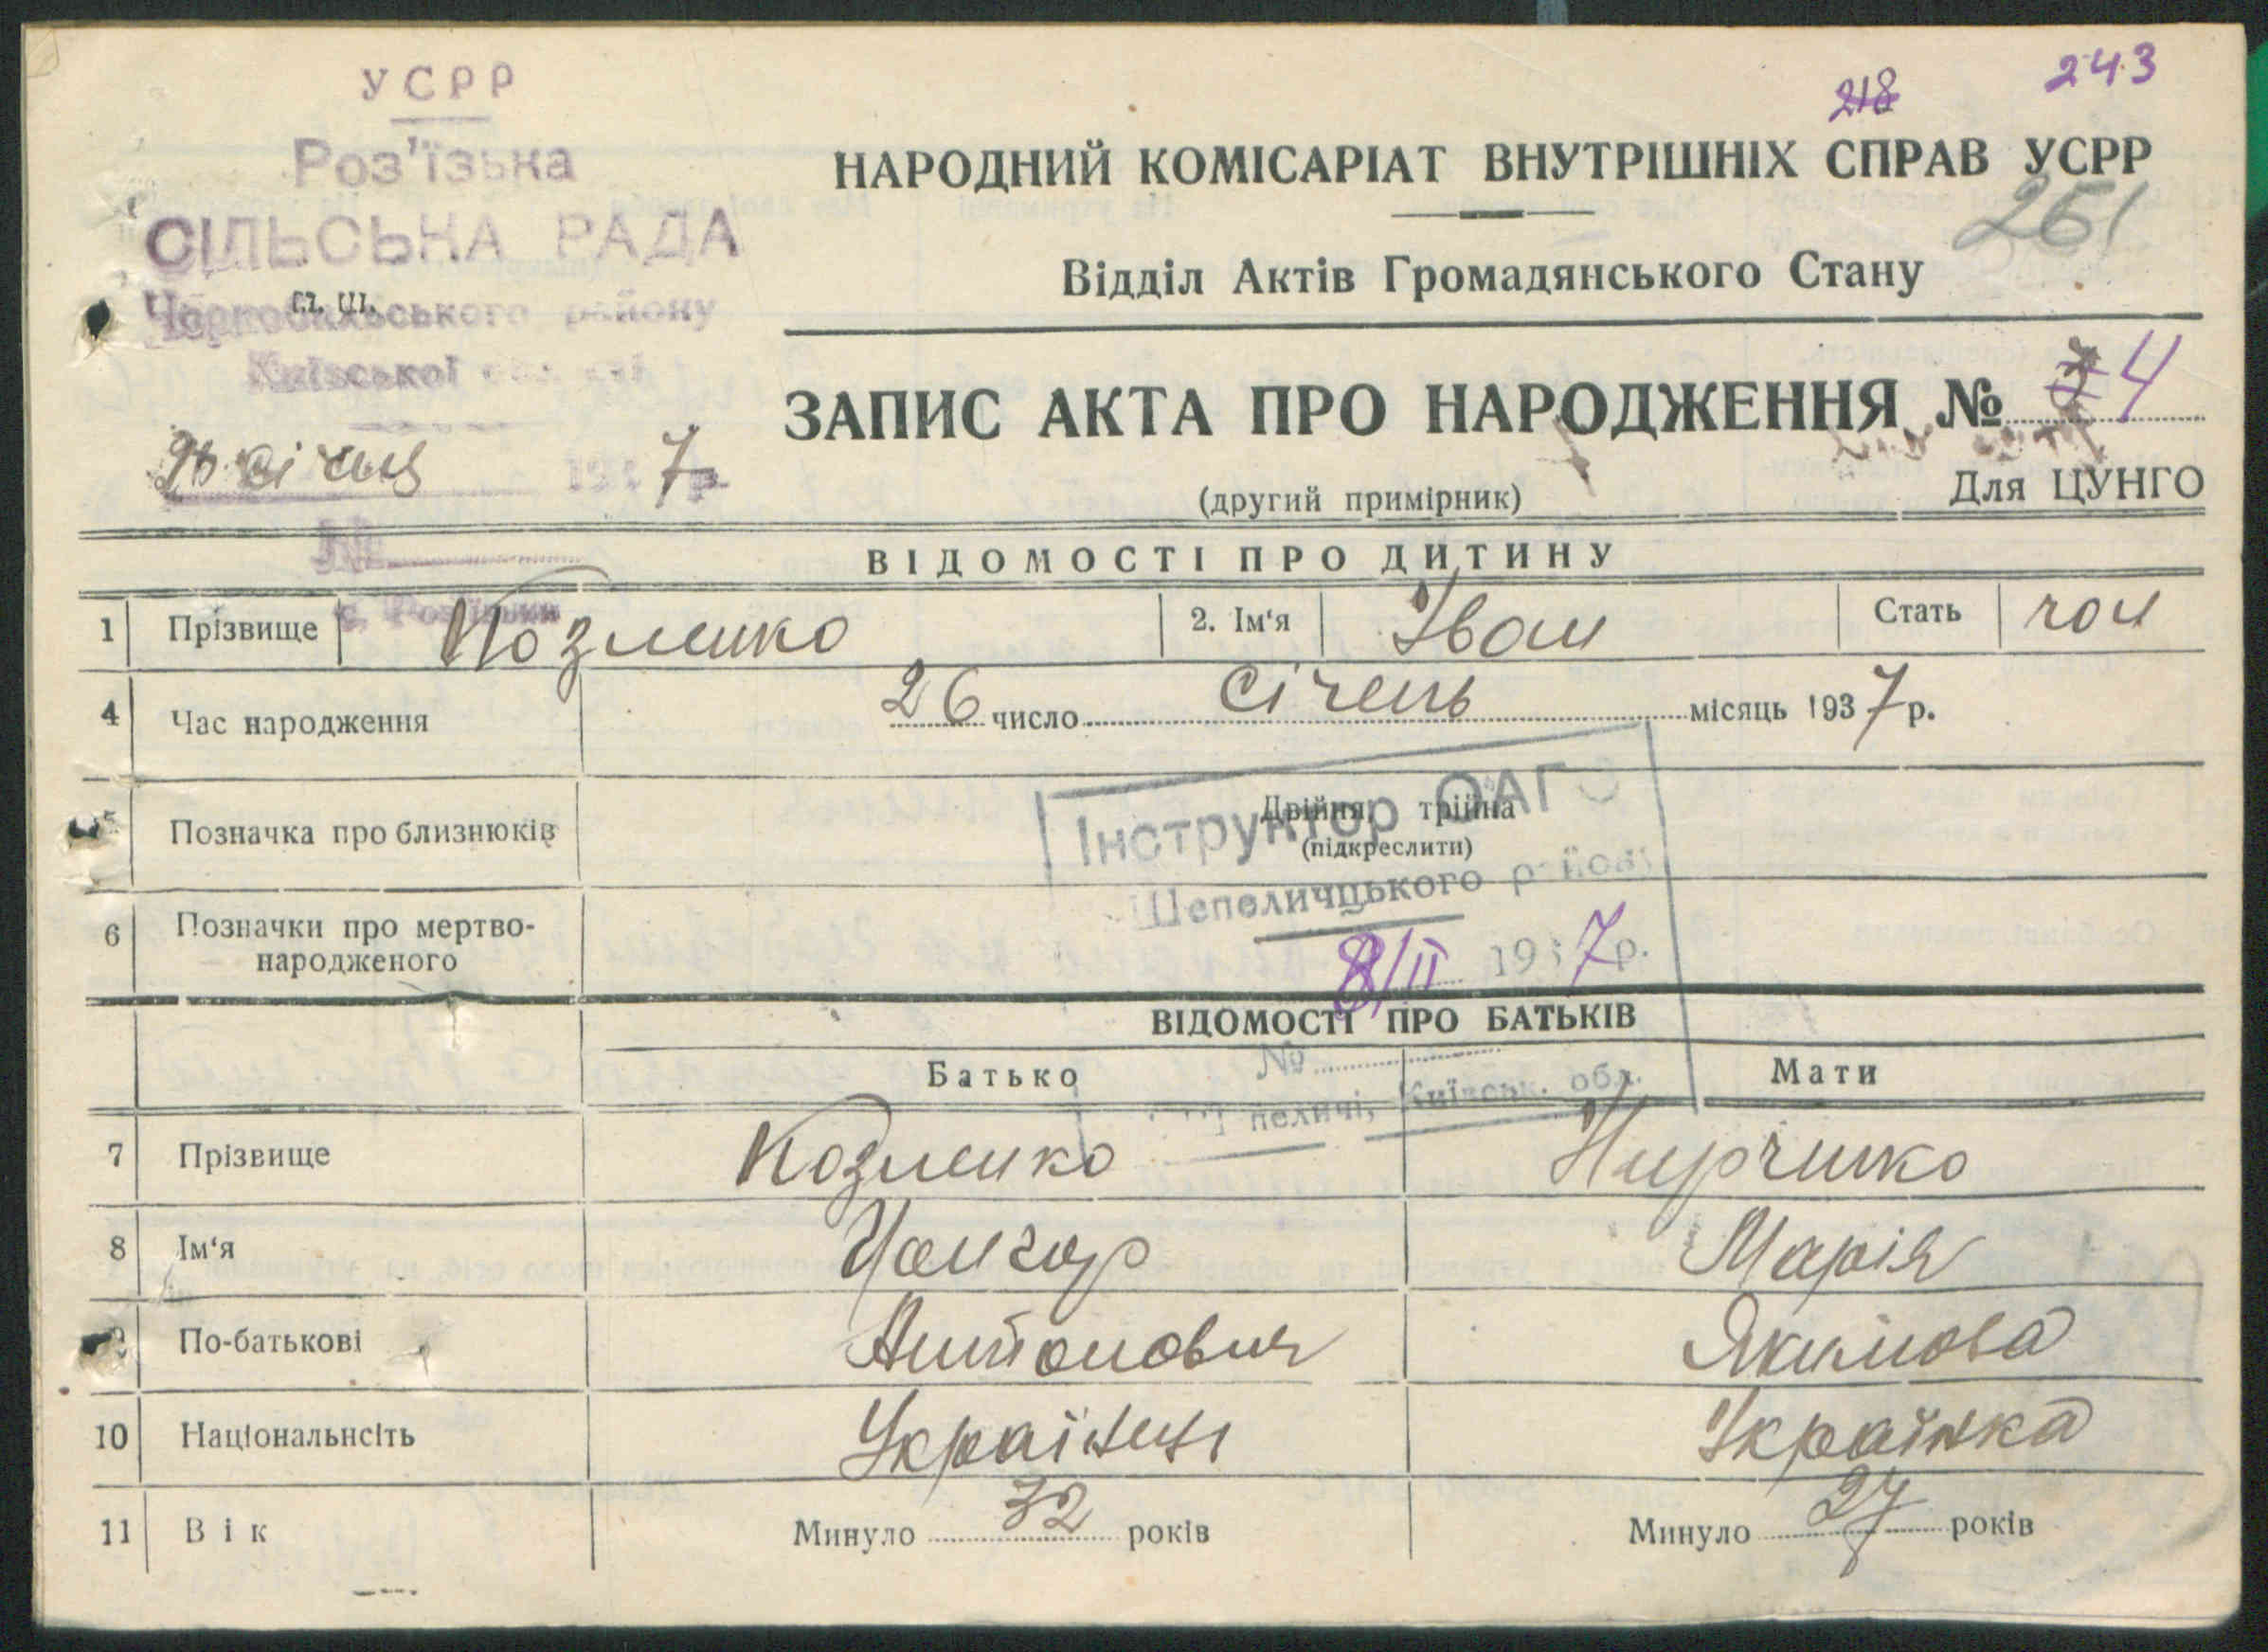 УСРР
Роз'їзька
СІЛЬСЬКА РАДА
Чорнобильського району
Київської
січня 1937
№
218 243
НАРОДНИЙ КОМІСАРІАТ ВНУТРІШНІХ СПРАВ УСРР
251
Відділ Актів Громадянського Стану
ЗАПИС АКТА ПРО НАРОДЖЕННЯ № 4
(другий примірник)
Для ЦУНГО
ВІДОМОСТІ ПРО ДИТИНУ
1 Прізвище Козленко 2. Ім'я Іван Стать чол
4 Час народження 26 число січень місяць 1937 р.
5 Позначка про близнюків Двійня, трійна
(підкреслити)
Інструктор ОАГС
Шепеличцького району
8/II 1937 р.
№
Шепеличі, Київськ. обл.
6 Позначки про мертво-
народженого
ВІДОМОСТІ ПРО БАТЬКІВ
Батько Мати
7 Прізвище Козленко
8 Ім'я Марія
9 По-батькові Антонович Якимова
10 Національнсіть Українець Українка
11 Вік Минуло 32 років Минуло 27 років